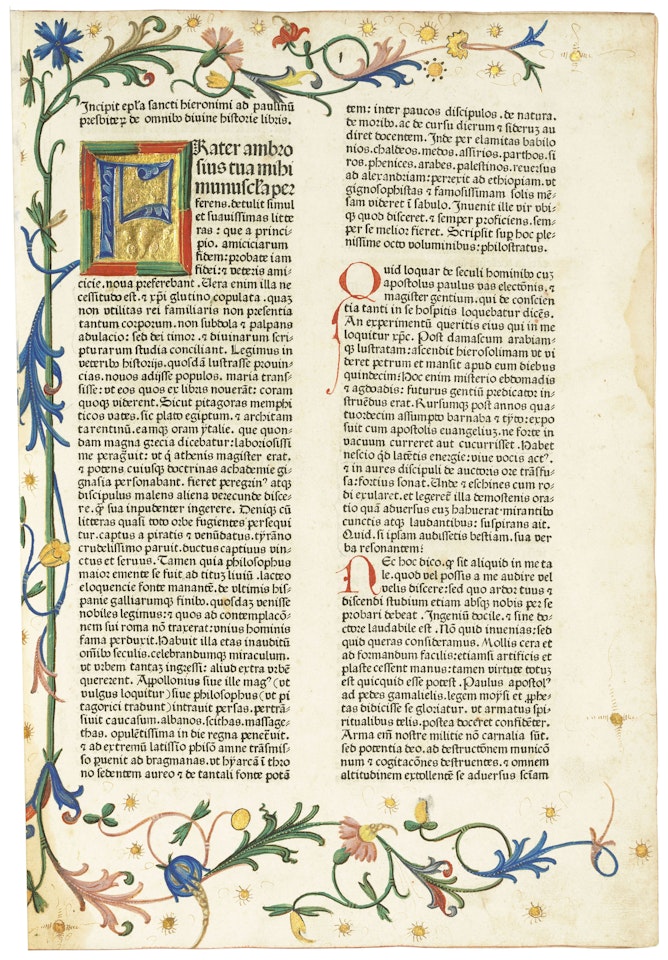 Incipit epl̃a sancti hieronimi ad paulinũ
presbiteꝝ de omnibꝰ divine historie libris.
FRater ambro
sius tua mihi
munuscl̃a per
ferens. detulit simul
et suavissimas litte
ras : que a princi
pio. amiciciarum
fidem : probate iam
fidei : ⁊ veteris ami
cicie. nova preferebant. Vera enim illa ne
cessitudo est. ⁊ xp̃i glutino copulata. quaꝫ
non utilitas rei familiaris non presentia
tantum corporum. non subdola ⁊ palpans
adulacio : sed dei timor. ⁊ divinarum scri
pturarum studia conciliant. Legimus in
veteribꝰ historijs. quosdã lustrasse provin
cias. novos adijsse populos. maria trans
fisse : vt eos quos ex libris noverãt : coram
quoqꝫ viderent. Sicut pitagoras memphi
ticos vates. sic plato egiptum. ⁊ architam
tarentinũ. eamqꝫ oram ytalie. que quon
dam magna grecia dicebatur : laboriosissi
me peragᷓuit : vt qͥ athenis magister erat.
⁊ potens. cuiusqꝫ doctrinas achademie gi
gnasia personabant. fieret peregrinꝰ atqꝫ
discipulus malens aliena verecunde disce
re. qᷓꝫ sua inpudenter ingerere. Deniqꝫ cũ
litteras quasi toto orbe fugientes persequi
tur. captus a piratis ⁊ venũdatus. tyrãno
crudelissimo paruit. ductus captivus vin
ctus et servus. Tamen quia philosophus
maior emente se fuit. ad titũ liviũ. lacteo
eloquencie fonte manantẽ. de vltimis his
panie galliarumqꝫ finibꝰ. quosdaꝫ venisse
nobiles legimus : ⁊ quos ad contemplacõ
nem sui roma nõ traxerat : vnius hominis
fama perduxit. Habuit illa etas inauditũ
om̃ibꝰ seculis. celebrandumqꝫ miraculum.
vt vrbem tantaꝫ ingressi : aliud extra vrbẽ
quererent. Appollonius sive ille magꝰ (vt
vulgus loquitur) sive philosophus (vt pi
tagorici tradunt) intravit persas. pertrã
sivit caucasum. albanos. scithas. massage-
thas. opulẽtissima indie regna penet̃vit.
⁊ ad extremũ latissĩo phisõ amne trãsmis-
so ꝑvenit ad bragmanas. vt hyarcã ĩ thro
no sedentem aureo ⁊ de tantali fonte potã
tem : inter paucos discipulos. de natura.
de moribꝰ. ac de cursu dierum ⁊ sideruꝫ au
diret docentem. Inde per elamitas babilo
nios. chaldeos. medos. assirios. parthos. si
ros. phenices. arabes. palestinos. reversus
ad alexandriam : perrexit ad ethiopiam. vt
gignosophistas ⁊ famosissimam solis mẽ-
sam videret ĩ sabulo. Invenit ille vir vbi-
qꝫ quod disceret. ⁊ semper proficiens. sem-
per se melior fieret. Scripsit suꝑ hoc ple-
nissime octo voluminibus : philostratus.
Quid loquar de seculi hominibꝰ cuꝫ
apostolus paulus vas electõnis. ⁊
magister gentium. qui de conscien
tia tanti in se hospitis loquebatur dicẽs.
An experimentũ queritis eius qui in me
loquitur xp̃c. Post damascum arabiam-
qꝫ lustratam : ascendit hierosolimam vt vi
deret petrum et mansit apud eum diebus
quindecim : Hoc enim misterio ebdomadis
⁊ agdoadis : futurus gentiũ predicator in-
struẽdus erat. Rursumqꝫ post annos qua-
tuordecim assumpto barnaba ⁊ tyto : expo
suit cum apostolis euangeliuꝫ. ne forte in
vacuum curreret aut cucurrisset. Habet
nescio qd̃ latẽtis energie : vive vocis actꝰ.
⁊ in aures discipuli de auctoris ore trãsfu-
sa : fortius sonat. Unde ⁊ eschines cum ro-
di exularet. et legeretʼ illa demostenis ora-
tio quã adversus euꝫ habuerat : mirantibꝰ
cunctis atqꝫ laudantibus : suspirans ait.
Quid. si ipsam audissetis bestiam. sua ver
ba resonantem :
NEc hoc dico. qꝙ sit aliquid in me ta
le. quod vel possis a me audire vel
velis discere : sed quo ardor tuus ⁊
discendi studium etiam absqꝫ nobis per se
probari debeat. Ingeniũ docile. ⁊ sine do-
ctore laudabile est. Nõ quid invenias : sed
quid queras consideramus. Mollis cera et
ad formandum facilis : etiamsi artificis et
plaste cessent manus : tamen virtute totuꝫ
est quicquid esse potest. Paulus apostolꝰ
ad pedes gamalielis. legem moysi et ꝓphe-
tas didicisse se gloriatur. vt armatus spi-
ritualibus telis. postea doceret confidẽter.
Arma em̃ nostre militie nõ carnalia sũt.
sed potentia deo. ad destructõnem municõ
num ⁊ cogitacõnes destruentes. ⁊ omnem
altitudinem extollentẽ se adversus sciẽtiam